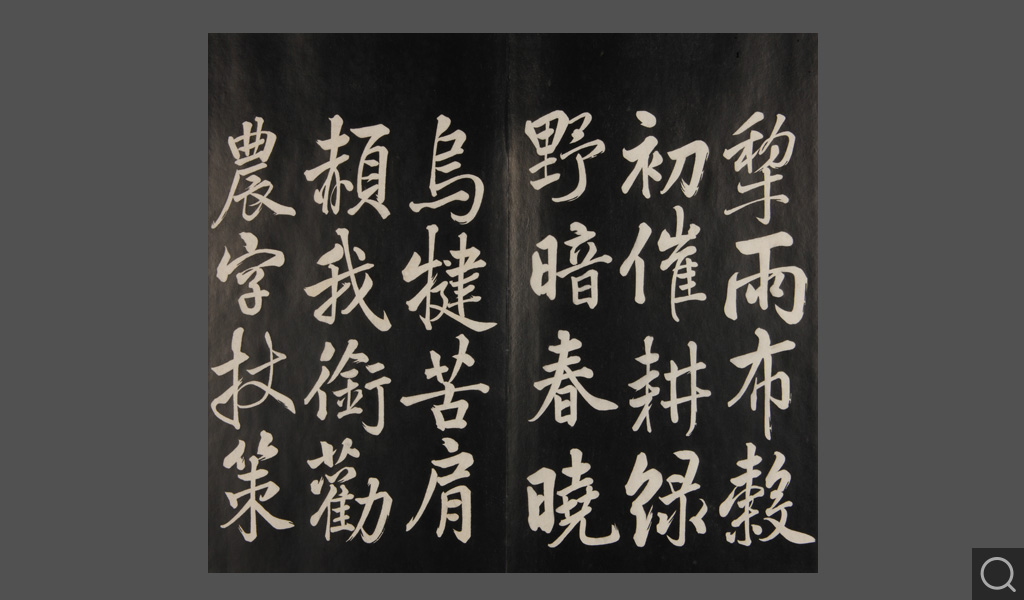 犂雨布穀
初催耕緑
野暗春曉
烏犍苦肩
頳我銜勸
農字杖策